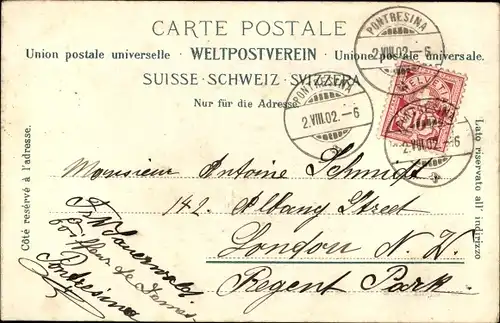 CARTE POSTALE
Union postale universelle · WELTPOSTVEREIN · Unione postale universale.
SUISSE · SCHWEIZ · SVIZZERA
Nur für die Adresse.
PONTRESINA
2.VIII.02.–6
PONTRESINA
2.VIII.02.–6
PONTRESINA
2.VIII.02.–6
HELVETIA
10
Côté réservé à l'adresse.
Lato riservato all' indirizzo
Monsieur Antoine Schmidt
142. Albany Street
London N. W.
Regent Park.
Coiffeur de Dames
Pontresina